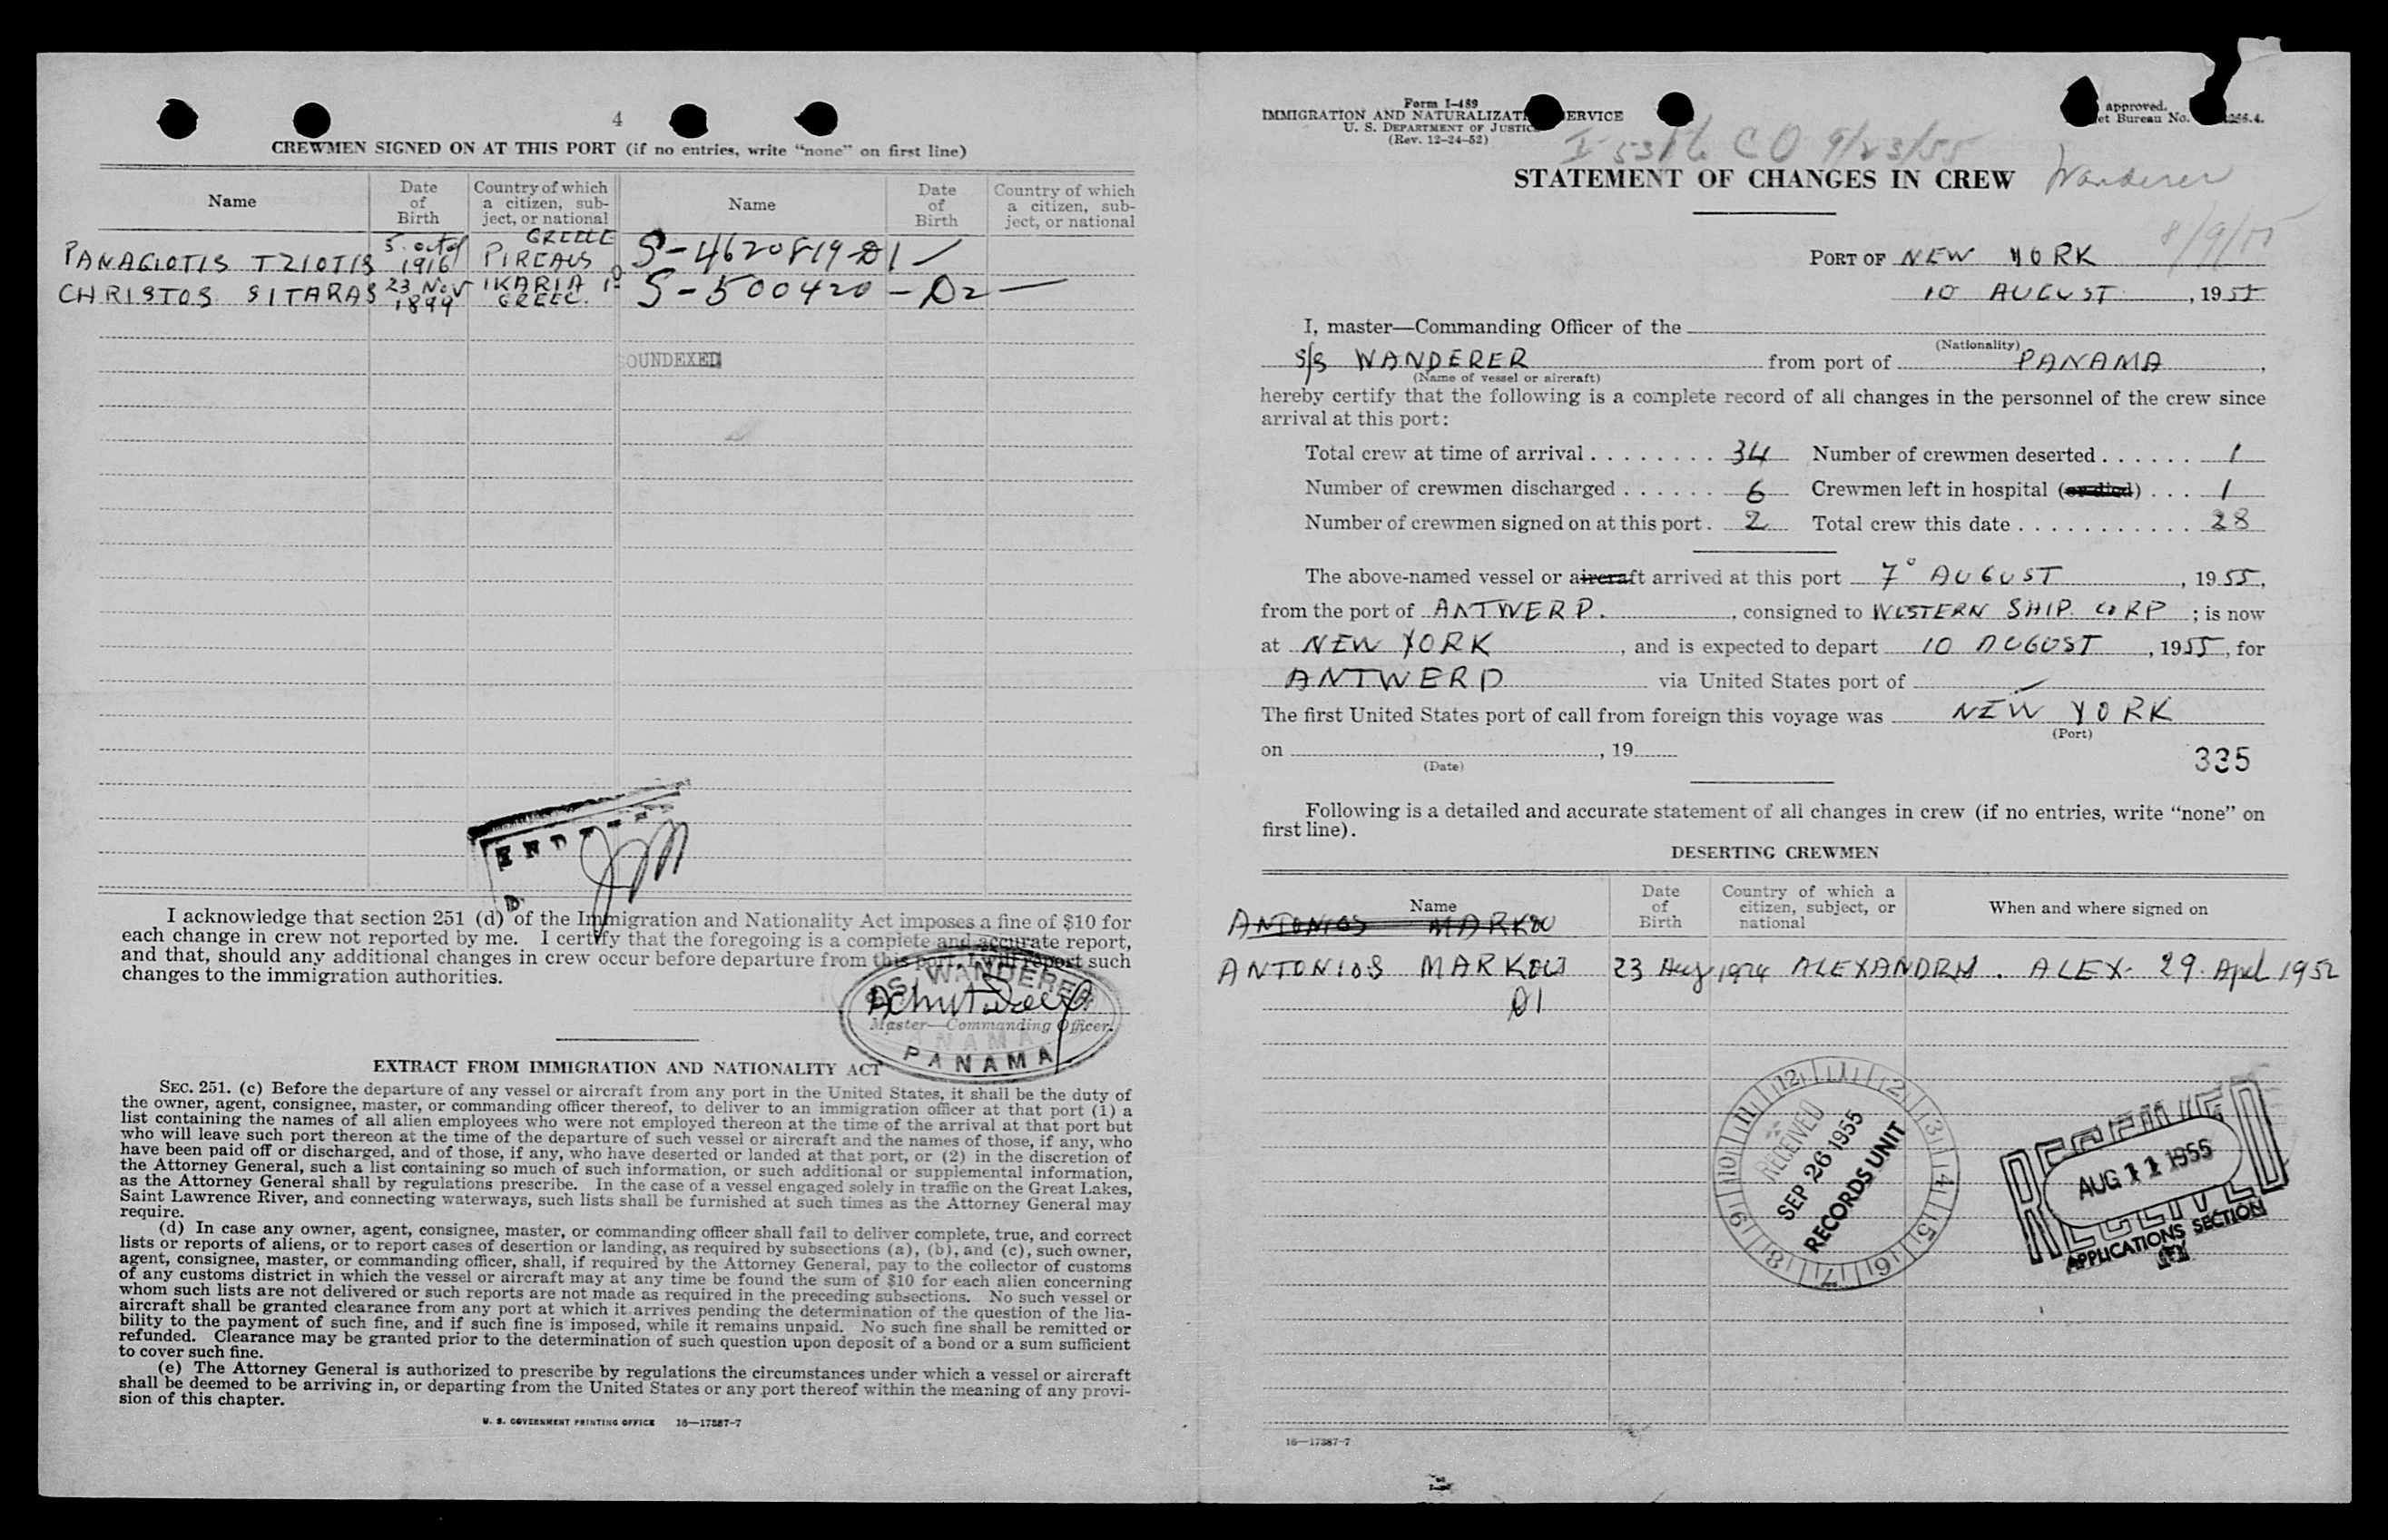 4
CREWMEN SIGNED ON AT THIS PORT (if no entries, write “none” on first line)
Name
Date of Birth
Country of which a citizen, subject, or national
Name
Date of Birth
Country of which a citizen, subject, or national
PANAGIOTIS TZIOTIS 1916 PIREAUS GREECE S-4620819-D1
CHRISTOS SITARAS 23 Nov 1899 IKARIA GREEC. S-500420-D2
SOUNDEXED
I acknowledge that section 251 (d) of the Immigration and Nationality Act imposes a fine of $10 for
each change in crew not reported by me. I certify that the foregoing is a complete and accurate report,
and that, should any additional changes in crew occur before departure from this port, I will report such
changes to the immigration authorities.
S.S. WANDERER
Master—Commanding Officer.
PANAMA
EXTRACT FROM IMMIGRATION AND NATIONALITY ACT
SEC. 251. (c) Before the departure of any vessel or aircraft from any port in the United States, it shall be the duty of
the owner, agent, consignee, master, or commanding officer thereof, to deliver to an immigration officer at that port (1) a
list containing the names of all alien employees who were not employed thereon at the time of the arrival at that port but
who will leave such port thereon at the time of the departure of such vessel or aircraft and the names of those, if any, who
have been paid off or discharged, and of those, if any, who have deserted or landed at that port, or (2) in the discretion of
the Attorney General, such a list containing so much of such information, or such additional or supplemental information,
as the Attorney General shall by regulations prescribe. In the case of a vessel engaged solely in traffic on the Great Lakes,
Saint Lawrence River, and connecting waterways, such lists shall be furnished at such times as the Attorney General may
require.
(d) In case any owner, agent, consignee, master, or commanding officer shall fail to deliver complete, true, and correct
lists or reports of aliens, or to report cases of desertion or landing, as required by subsections (a), (b), and (c), such owner,
agent, consignee, master, or commanding officer, shall, if required by the Attorney General, pay to the collector of customs
of any customs district in which the vessel or aircraft may at any time be found the sum of $10 for each alien concerning
whom such lists are not delivered or such reports are not made as required in the preceding subsections. No such vessel or
aircraft shall be granted clearance from any port at which it arrives pending the determination of the question of the lia-
bility to the payment of such fine, and if such fine is imposed, while it remains unpaid. No such fine shall be remitted or
refunded. Clearance may be granted prior to the determination of such question upon deposit of a bond or a sum sufficient
to cover such fine.
(e) The Attorney General is authorized to prescribe by regulations the circumstances under which a vessel or aircraft
shall be deemed to be arriving in, or departing from the United States or any port thereof within the meaning of any provi-
sion of this chapter.
U. S. GOVERNMENT PRINTING OFFICE 16—17387-7
Form I-489
IMMIGRATION AND NATURALIZATION SERVICE
U. S. DEPARTMENT OF JUSTICE
(Rev. 12-24-52)
approved.
et Bureau No.
CO 9/23/55
STATEMENT OF CHANGES IN CREW Wanderer
PORT OF NEW YORK
10 AUGUST, 1955
I, master—Commanding Officer of the
(Nationality)
S/S WANDERER from port of PANAMA,
(Name of vessel or aircraft)
hereby certify that the following is a complete record of all changes in the personnel of the crew since
arrival at this port:
Total crew at time of arrival 34 Number of crewmen deserted 1
Number of crewmen discharged 6 Crewmen left in hospital (or died) 1
Number of crewmen signed on at this port. 2 Total crew this date 28
The above-named vessel or aircraft arrived at this port 7° AUGUST, 1955,
from the port of ANTWERP., consigned to WESTERN SHIP. CORP; is now
at NEW YORK, and is expected to depart 10 AUGUST, 1955, for
ANTWERP via United States port of
The first United States port of call from foreign this voyage was NEW YORK
(Port)
on, 19
(Date)
335
Following is a detailed and accurate statement of all changes in crew (if no entries, write “none” on
first line).
DESERTING CREWMEN
Name
Date of Birth
Country of which a citizen, subject, or national
When and where signed on
ANTONIOS MARKOU
ANTONIOS MARKOU 23 Aug 1924 ALEXANDRIA. ALEX. 29. April 1952
D1
RECEIVED
SEP 26 1955
RECORDS UNIT
RECEIVED
AUG 11 1955
APPLICATIONS SECTION
16—17387-7